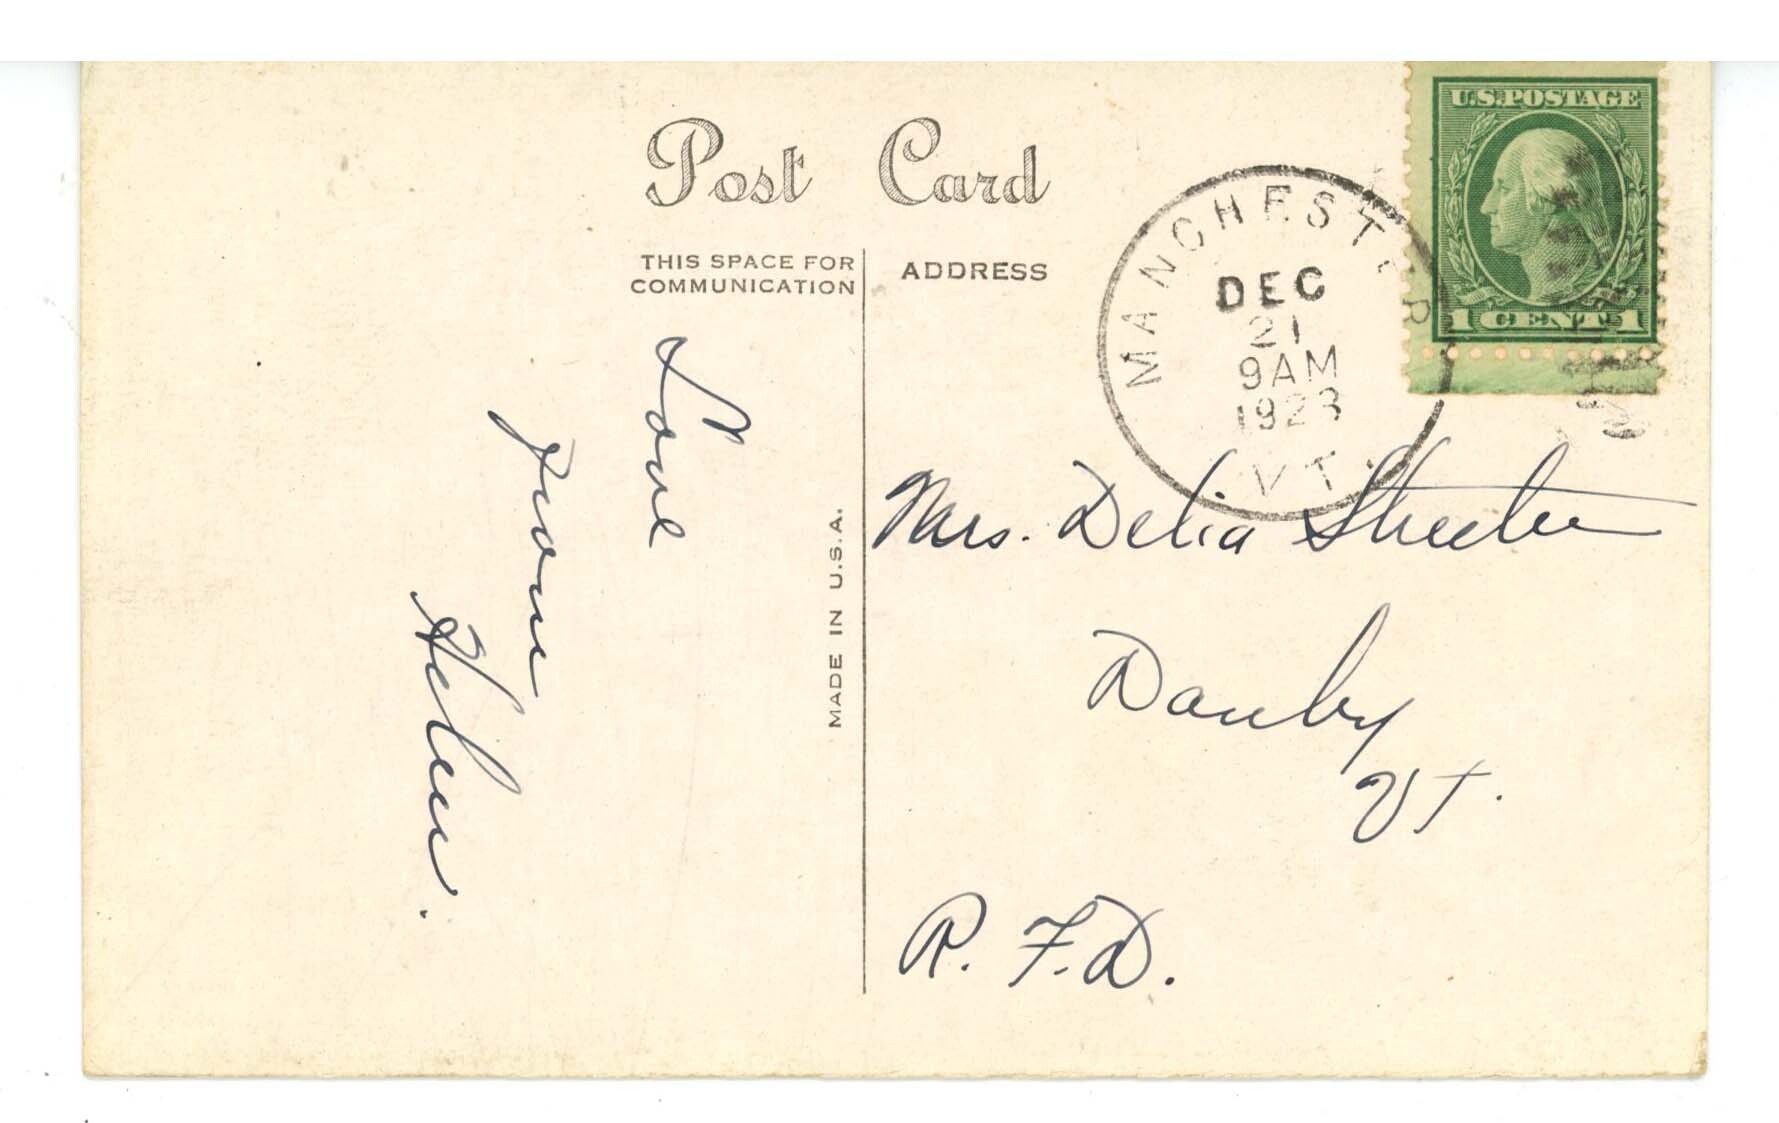 Post Card
THIS SPACE FOR
COMMUNICATION
ADDRESS
MANCHESTER
DEC
21
9AM
1923
VT.
U.S. POSTAGE
1 CENT 1
Love
from
Helen.
MADE IN U.S.A.
Mrs. Delia Streeter
Danby
Vt.
R. F. D.